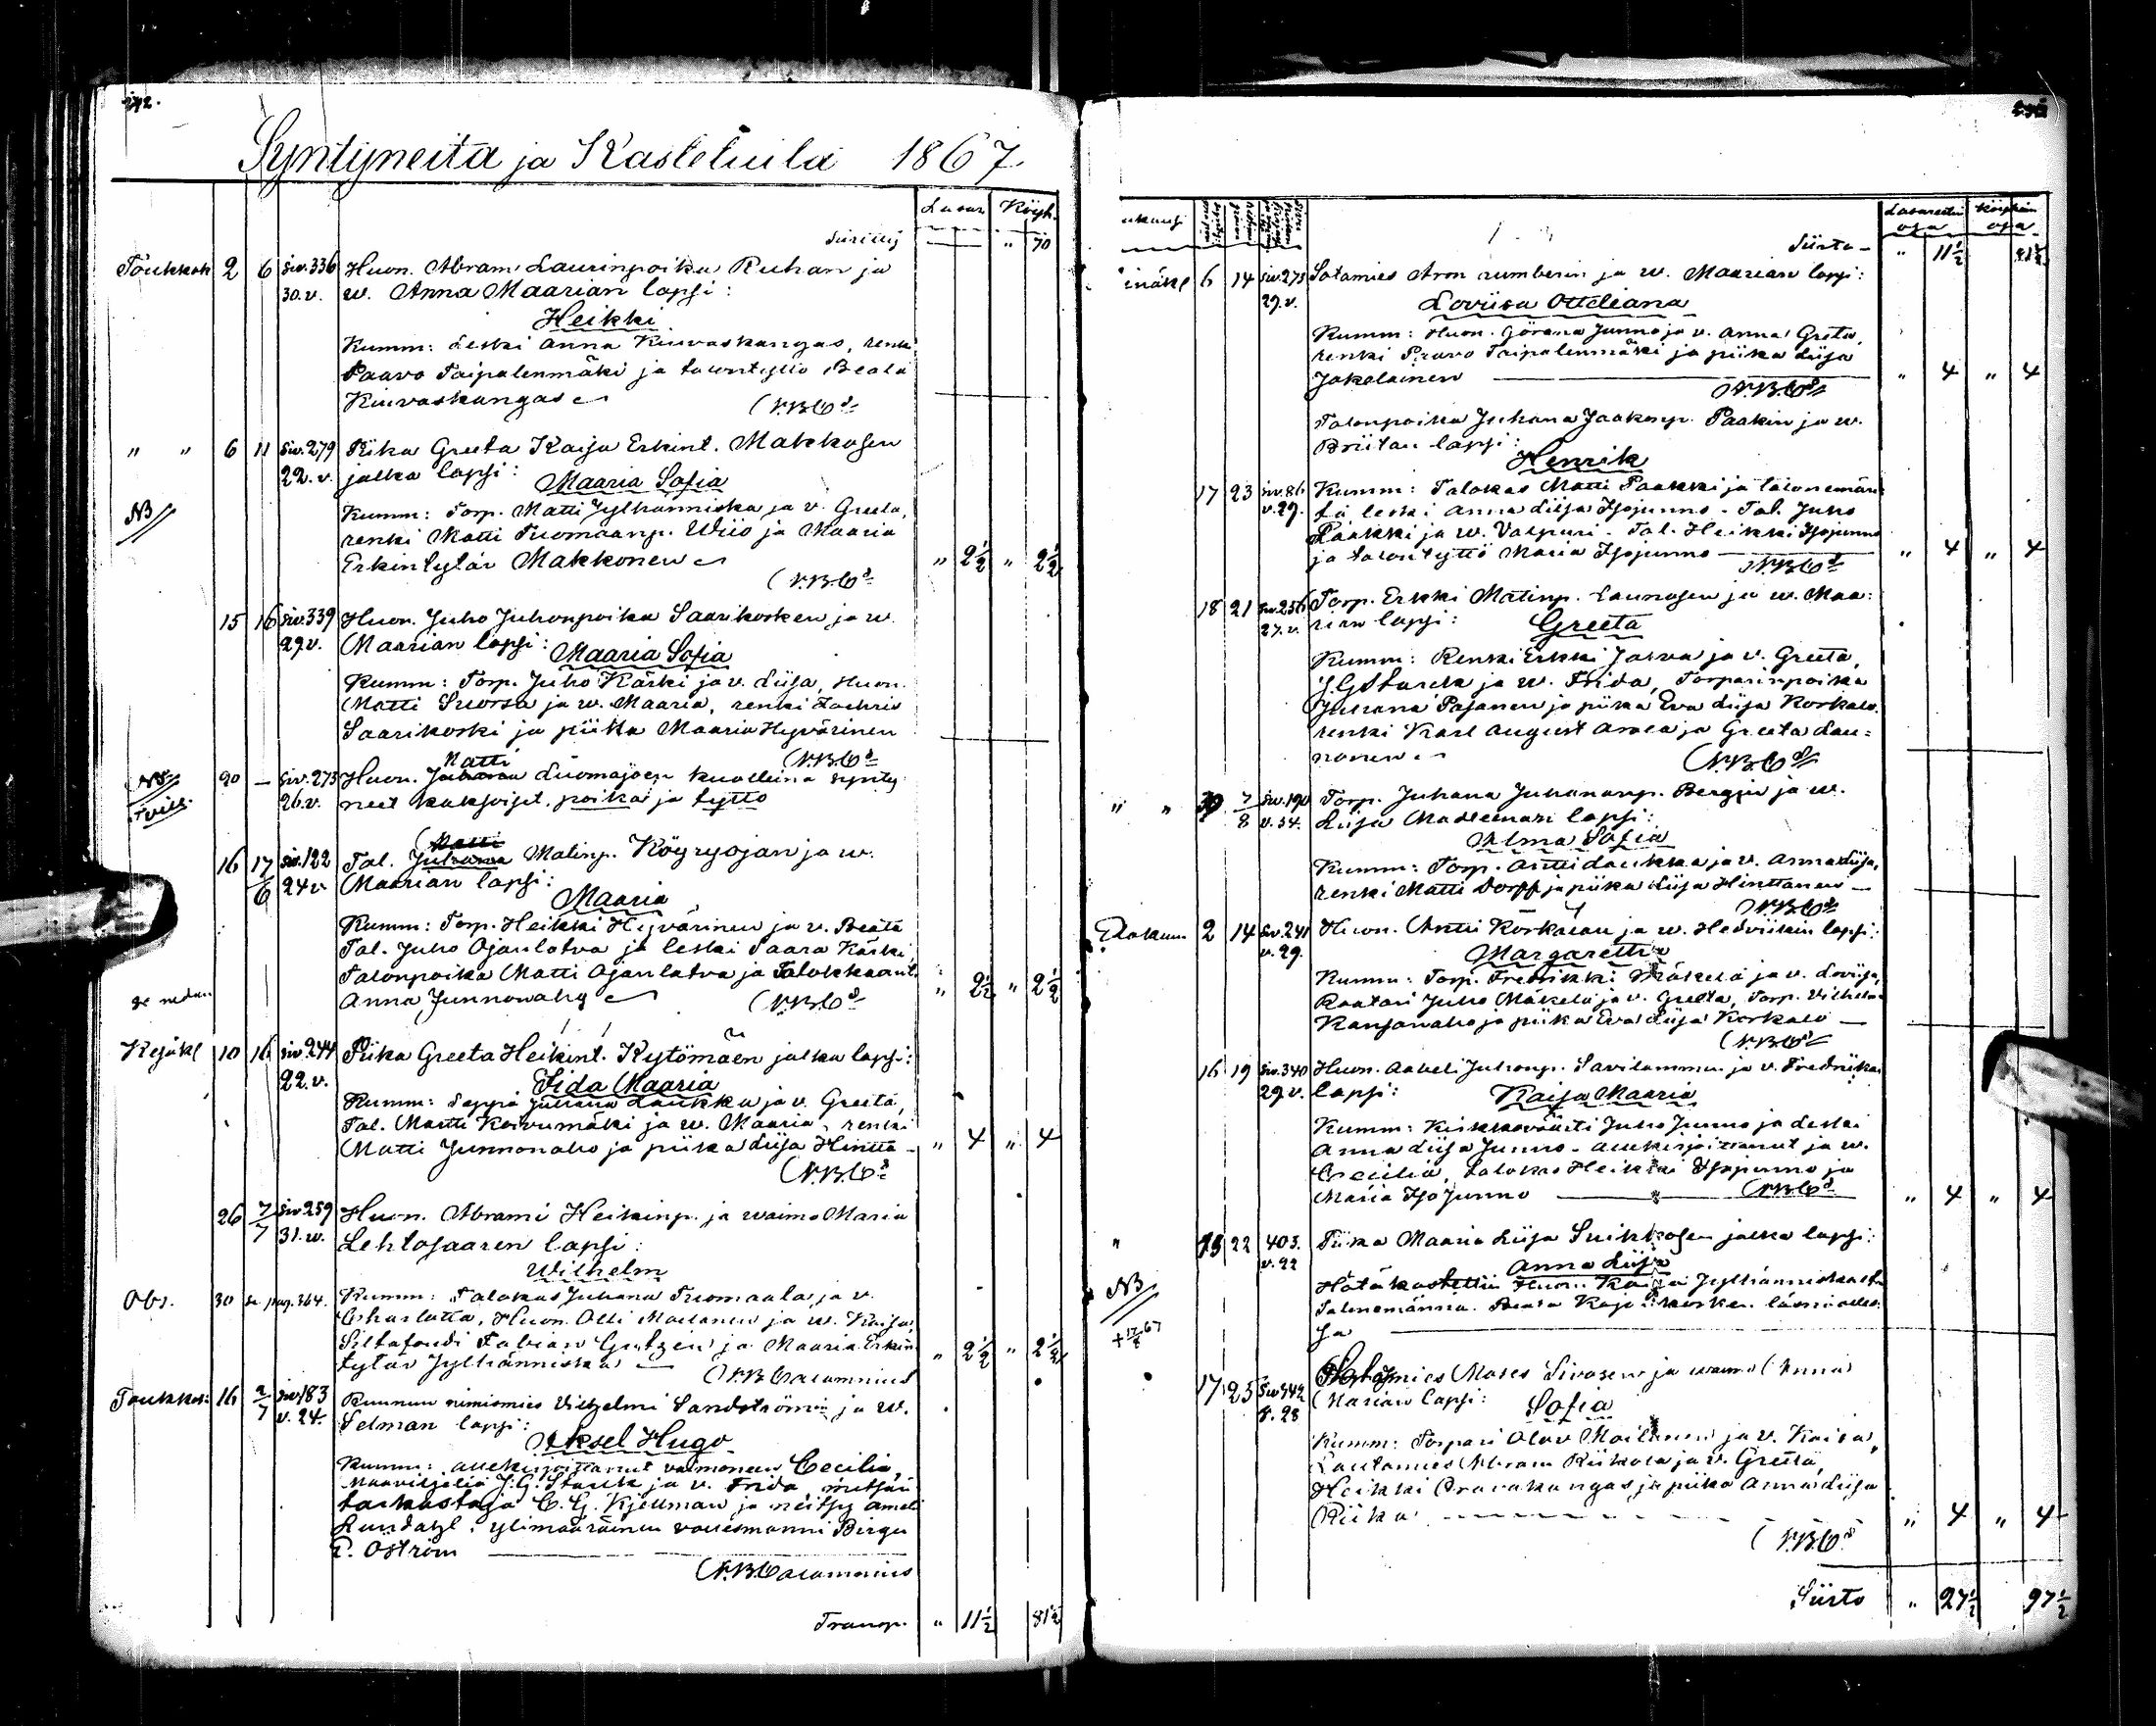 242.
Syntyneitä ja Kastetuita 1867
Lasar. Köyh.
" 70
Toukkok 2 6 Siv. 336 Huon. Abram Laurinpoika Ruhan ja
30. v. w. Anna Maarian lapsi:
Heikki
Kumm: Leski Anna Kuivaskangas, renki
Paavo Taipalenmäki ja talontytiö Beata
Kuivaskangas
N.B.C
" " 6 11 Siv. 279 Piika Greeta Kaisa Erkint. Makkosen
22. v. jalka lapsi: Maaria Sofia
NB
Kumm: Torp. Matti Jylhänniska ja v. Greeta,
renki Matti Tuomaanp. Wiio ja Maaria
Erkintytär Makkonen " 2½ " 2½
N.B.C
15 16 Siv. 339 Huon. Juho Juhonpoika Saarikosken ja w.
29. v. Maarian lapsi: Maaria Sofia
Kumm: Torp. Juho Kärki ja v. Liisa, Huon.
Matti Suorsa ja w. Maaria, renki Zachris
Saarikoski ja piika Maaria Hyvärinen
N.B.C
Matti
NB 20 — Siv. 273 Huon. Juhana Luomajoen kuolleina synty-
26. v. neet kaksoiset, poika ja tyttö
Matti
16 17/6 Siv. 122 Tal. Juhana Matinp. Köyryojan ja w.
24 v Maarian lapsi:
Maaria
Kumm: Torp. Heikki Hyvärinen ja v. Beata
Tal. Juho Ojanlatva ja leski Saara Kärki,
Talonpoika Matti Ojanlatva ja
se nedan Anna Junnonaho " 2½ " 2½
N.B.C
Kesäk 10 16 Siv. 244 Piika Greeta Heikint. Kytömäen jalka lapsi:
22. v. Fida Maaria
Kumm: Seppä Juhana Laukka ja v. Greeta,
Tal. Martti Koivumäki ja w. Maaria, renki
Matti Junnonaho ja piika Liisa Hintta " 4 " 4
N.B.C
26 7/7 Siv 259 Huon. Abrami Heikinp. ja waimo Maria
31. w. Lehtosaaren lapsi:
Wilhelm
Obs. 30 se pag. 364. Kumm: Talokas Juhana Tuomaala, ja v.
Charlotta, Huon. Olli Moilanen ja w. Kaisa,
Siltafouti Fabian Gutzén ja Maaria Erkin
tytär Jylhänniska " 2½ " 2½
N.B. Calamnius
Toukkok: 16 2/7 Siv 183 Ruunun nimismies Vilhelmi Sandströmin ja W.
v. 24. Selman lapsi:
Aksel Hugo
Kumm: allekirjoittanut vaimoneen Cecilia,
Maaviljeliä J.G. Starck ja v. Frida, metsän
tarkastaja C.G. Kjellman ja neitsy Ameli
Lundahl, ylimääräinen vallesmanni Birger
E. Öström
N.B. Calamnius
Transp. " 11½ 81½

Lasaretin osa Köyhäin osa
Siirto — " 11½ 81½
6 14 Siv. 273 Sotamies Aron rumberin ja w. Maarian lapsi:
29. v. Loviisa Otteliana
Kumm: Huon. Görana Junno ja v. Anna Greta,
renki Paavo Taipalenmäki ja piika Liisa
Jakolainen " 4 " 4
N.B.C
Talonpoika Juhana Jaakonp. Paakin ja w.
Briitan lapsi:
Henrik
17 23 Siv. 86 Kumm: Talokas Matti Paakki ja talonemän-
v. 29. tä leski Anna Liisa Isojunno - Tal. Juho
Paakki ja w. Valpuri - Tal. Heikki Isojunno
ja talontyttö Maria Isojunno " 4 " 4
N.B.C
18 21 Siv. 256 Torp. Erkki Matinp. Launosen ja w. Maa:
27. v. rian lapsi: Greeta
Kumm: Renki Erkki Jarva ja v. Greeta,
J.G. Starck ja w. Frida, Torparinpoika
Juhana Pajanen ja piika Eva Liisa Korkalo.
renki Karl August Arola ja Greeta Lau=
nonen
N.B.C
" " 30 7/8 Siv. 190 Torp. Juhana Juhananp. Bergin ja w.
v. 34. Liisa Madleenan lapsi:
Alma Sofia
Kumm: Torp. Antti Laukka ja v. Anna Liisa,
renki Matti Torpp ja piika Liisa Hinttanen —
N.B.C
Elokuu 2 14 Siv. 241 Huon. Antti Korkalan ja w. Hedvikin lapsi:
v. 29. Margaretta
Kumm: Torp. Fredrikki Mäkelä ja v. Loviisa,
Raatari Juho Mäkelä ja v. Greeta, Torp. Vilhelm
Kansanaho ja piika Eva Liisa Korkalo —
N.B.C
16 19 Siv. 340 Huon. Aabeli Juhonp. Savilammin ja v. Fredriikan
29. v. lapsi: Kaisa Maaria
Kumm: Kirkkoväärti Juho Junno ja Leski
Anna Liisa Junno - allekirjoittanut ja w.
Cecilia, Talokas Heikki Isojunno ja
Maria Isojunno " 4 " 4
N.B.C
" 15 22 403. Piika Maaria Liisa Suikkosen jalka lapsi:
v. 22 Anna Liisa
NB Hätäkastettiin Huon. Kaisa Jylhänniskasta
Talonemännän Beata läsnä olles-
sa
17 25 Siv 342 Sotamies Moses Sivosen ja waimo Anna
v. 28 Marian lapsi: Sofia
Kumm: Torpari Olav Moilanen ja v. Kaisa,
Lautamies Abram Riikola ja v. Greeta,
Heikki Oravakangas ja piika Anna Liisa
Riika " 4 " 4
N.B.C
Siirto " 27½ 97½